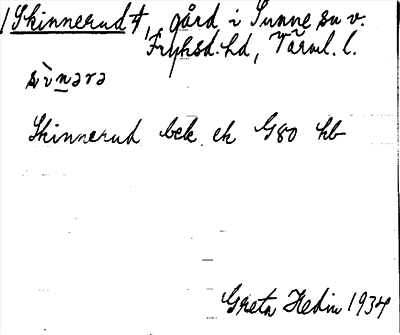 Skinnerud, gård i Sunne sn v.
Fryksd. hd, Värml. l.
Skinnerud bek. ek G80 hb
Greta Hedin 1934